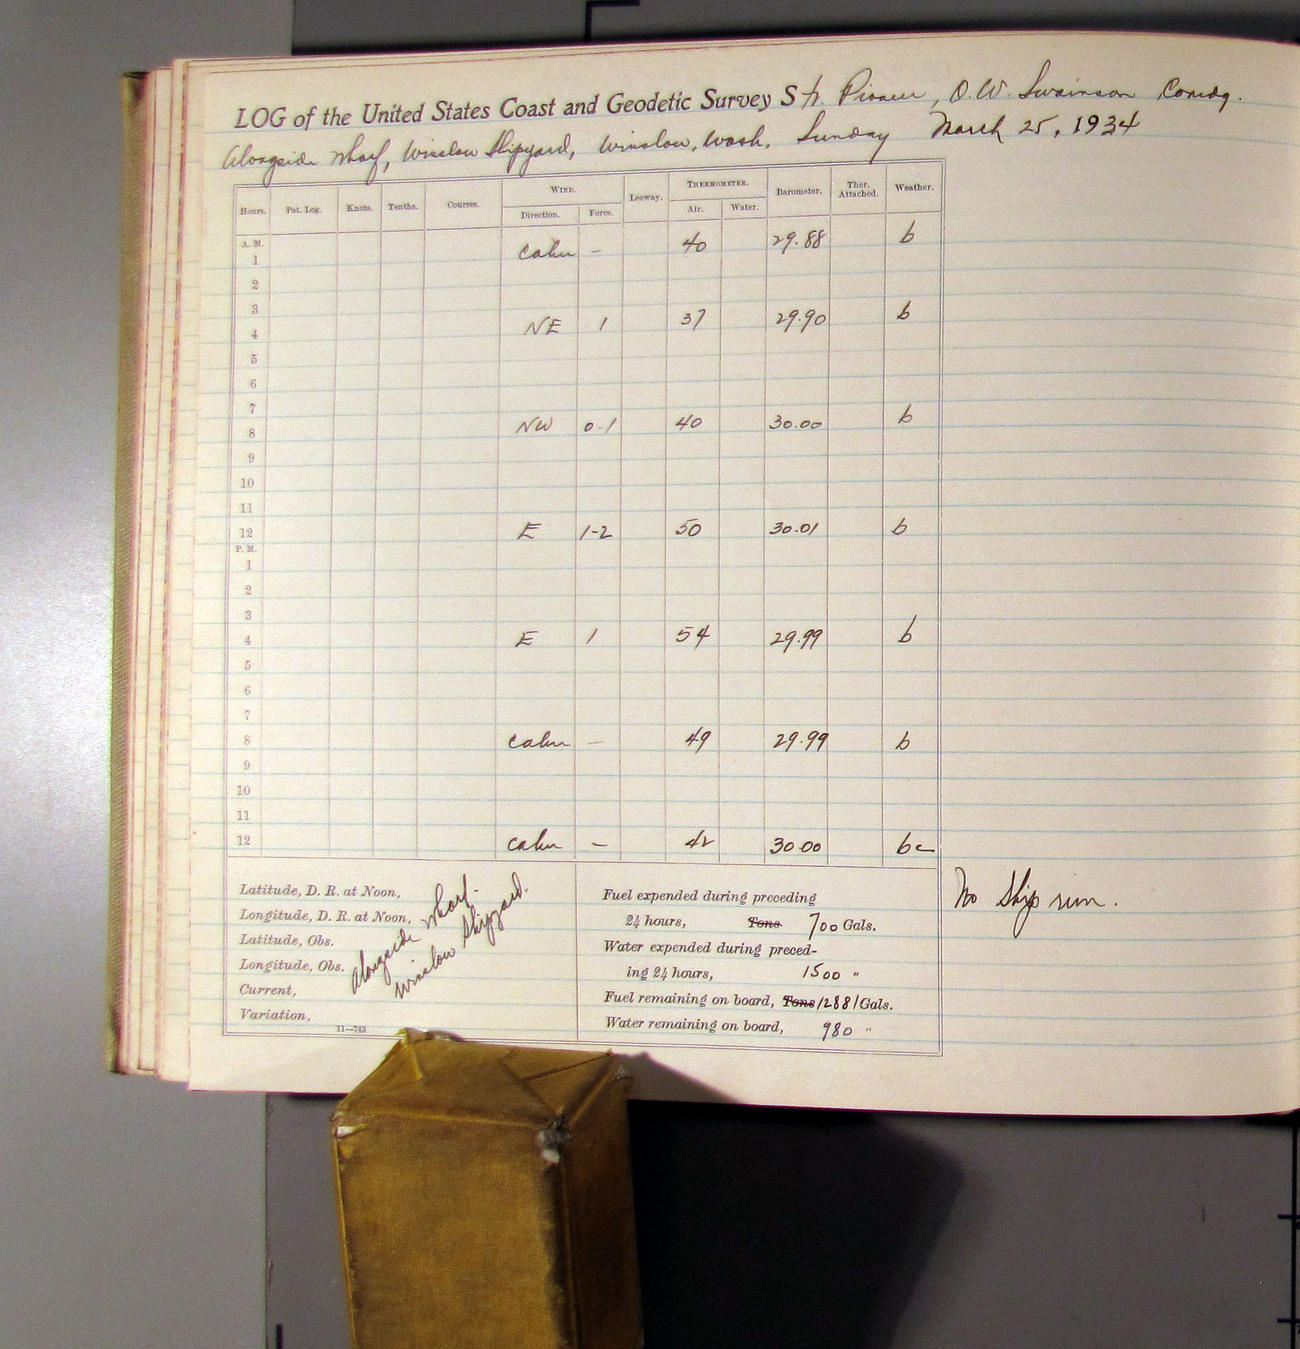 LOG of the United States Coast and Geodetic Survey Str. Pioneer, O.W. Swainson Comdg.
Alongside Wharf, Winslow Shipyard, Winslow, Wash. Sunday March 25, 1934
Hours. Pat. Log. Knots. Tenths. Courses. WIND. Direction. Force. Leeway. THERMOMETER. Air. Water. Barometer. Ther. Attached. Weather.
A. M.
1 Calm – 40 29.88 b
2
3
4 NE 1 37 29.90 b
5
6
7
8 NW 0-1 40 30.00 b
9
10
11
12 E 1-2 50 30.01 b
P. M.
1
2
3
4 E 1 54 29.99 b
5
6
7
8 Calm – 49 29.99 b
9
10
11
12 Calm – 42 30.00 bc
Latitude, D. R. at Noon,
Longitude, D. R. at Noon,
Latitude, Obs.
Longitude, Obs.
Current,
Variation,
Alongside Wharf-
Winslow Shipyard.
11—743
Fuel expended during preceding
24 hours, Tons 700 Gals.
Water expended during preced-
ing 24 hours, 1500 "
Fuel remaining on board, Tons 12881 Gals.
Water remaining on board, 980 "
No Ship run.